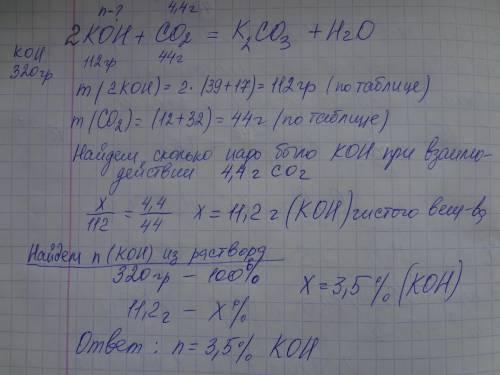 n-? 4,4г
2KOH + CO₂ = K₂CO₃ + H₂O
KOH
320гр
112гр 44г
m(2KOH) = 2·(39+17) = 112гр (по таблице)
m(CO₂) = (12+32) = 44г (по таблице)
Найдем, сколько надо было KOH при взаимо-
действии 4,4г CO₂
x/112 = 4,4/44 x = 11,2г (KOH) чистого вещ-ва
Найдем n(KOH) из раствора
320гр – 100%
11,2г – X%
X = 3,5% (KOH)
Ответ: n = 3,5% KOH